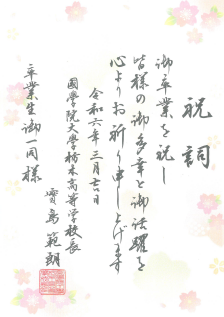 祝詞
御卒業を祝し
皆様の御多幸と御活躍を
心よりお祈り申し上げます
令和六年三月吉日
國學院大學栃木高等学校長
範朗
卒業生御一同様